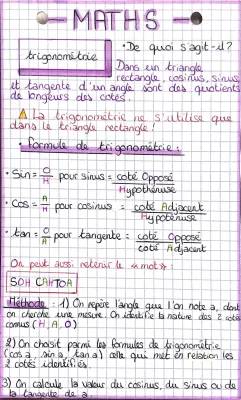 MATHS
trigonométrie
• De quoi s'agit-il?
Dans un triangle
rectangle, cosinus, sinus
et tangente d'un angle sont des quotients
de longeurs des cotés.
⚠ La trigonométrie ne s'utilise que
dans le triangle rectangle!
• formule de trigonométrie:
• Sin = O/H pour sinus = coté Opposé / Hypothénuse
• Cos = A/H pour cosinus = coté Adjacent / Hypoténuse
• tan = O/A pour tangente: coté Opposé / coté Adjacent
On peut aussi retenir le «mot»:
SOH CAHTOA
Méthode: 1) On repère l'angle que l'on note a, dont
on cherche une mesure. On identifie la nature des 2 cotés
connus (H, A, O)
2) On choisit parmi les formules de trigonométrie
(cos a, sin a, tan a) celle qui met en relation les
2 cotés identifiés.
3) On calcule la valeur du cosinus, du sinus ou de
la tangente de a.